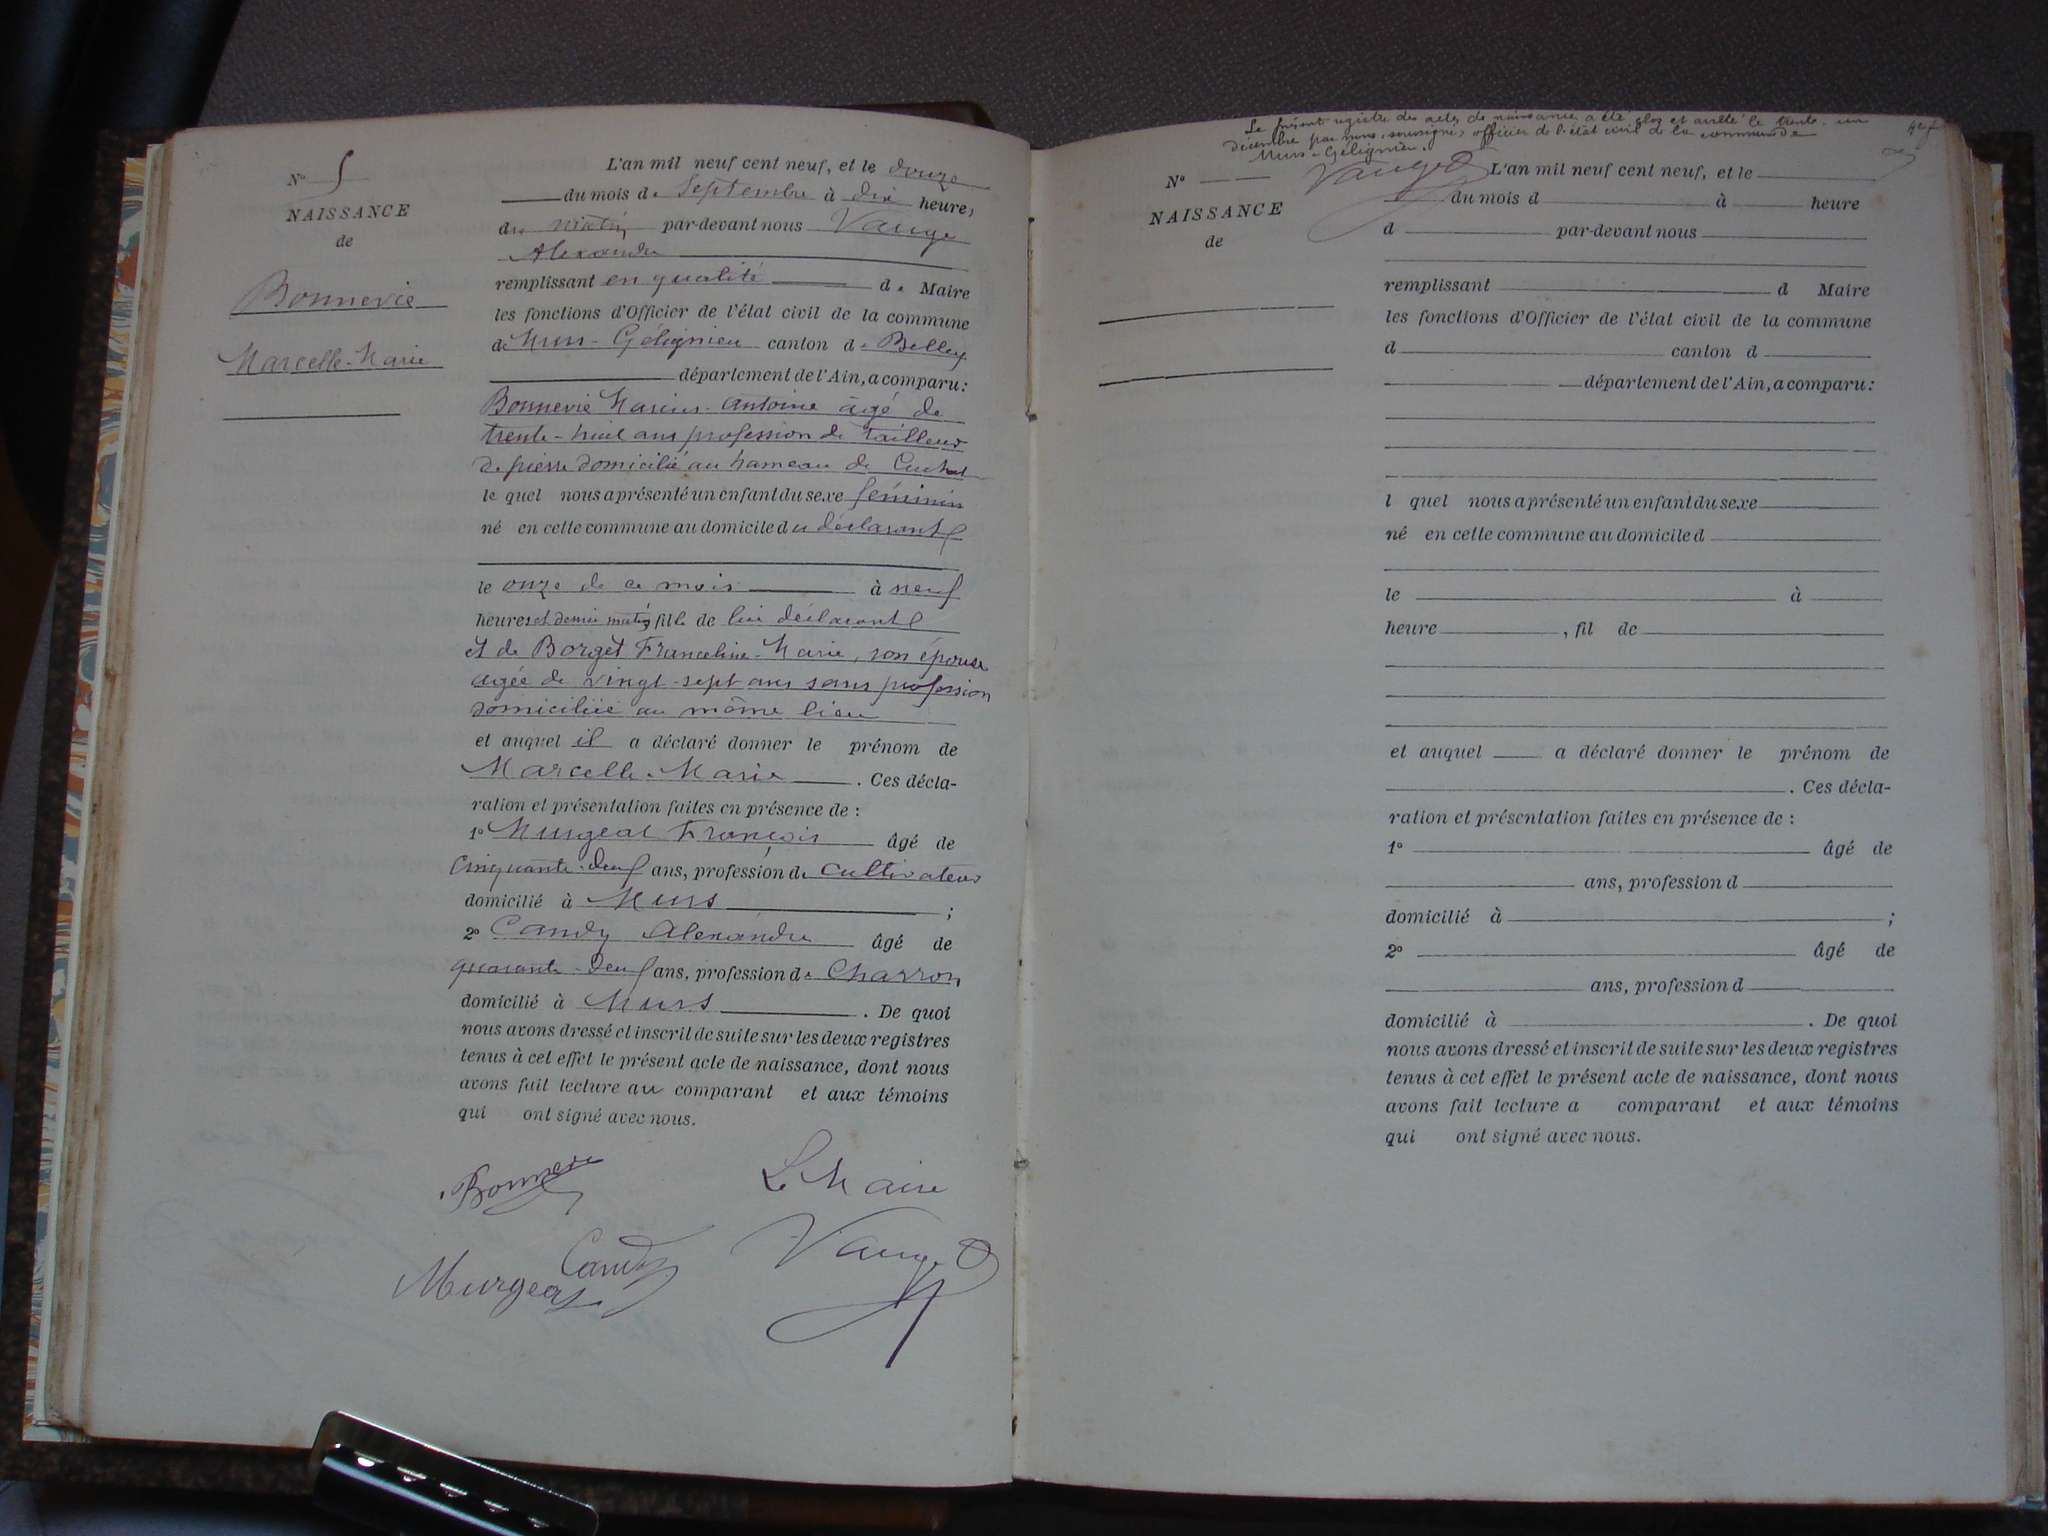 N° 5
NAISSANCE
de
Bonnevie
Marcelle-Marie
L'an mil neuf cent neuf, et le douze
du mois de Septembre à dix heures
du matin par-devant nous Vauge
Alexandre
remplissant en qualité de Maire
les fonctions d'Officier de l'état civil de la commune
de Murs-Gélignieu canton de Belley
département de l'Ain, a comparu:
Bonnevie Marius-Antoine âgé de
trente-huit ans profession de tailleur
de pierre domicilié au hameau de
le quel nous a présenté un enfant du sexe féminin
né en cette commune au domicile du déclarant
le onze de ce mois à neuf
heures et demie matin, fille de lui déclarant
et de Borget Franceline-Marie, son épouse
âgée de vingt-sept ans sans profession
domiciliée au même lieu
et auquel il a déclaré donner le prénom de
Marcelle-Marie. Ces décla-
ration et présentation faites en présence de :
1° Murgeat François âgé de
cinquante-deux ans, profession de cultivateur
domicilié à Murs ;
2° Candy Alexandre âgé de
quarante-deux ans, profession de Charron,
domicilié à Murs. De quoi
nous avons dressé et inscrit de suite sur les deux registres
tenus à cet effet le présent acte de naissance, dont nous
avons fait lecture au comparant et aux témoins
qui ont signé avec nous.
Bonnevie
Le Maire
Candy
Vauge
Murgeat
Le présent registre des actes de naissance a été clos et arrêté le trente-un
décembre par nous, soussigné, officier de l'état civil de la commune de
Murs-Gélignieu.
Vauge
N°
NAISSANCE
de
L'an mil neuf cent neuf, et le
du mois d à heure
d par-devant nous
remplissant d Maire
les fonctions d'Officier de l'état civil de la commune
d canton d
département de l'Ain, a comparu:
l quel nous a présenté un enfant du sexe
né en cette commune au domicile d
le à
heure , fil de
et auquel a déclaré donner le prénom de
. Ces décla-
ration et présentation faites en présence de :
1° âgé de
ans, profession d
domicilié à ;
2° âgé de
ans, profession d
domicilié à . De quoi
nous avons dressé et inscrit de suite sur les deux registres
tenus à cet effet le présent acte de naissance, dont nous
avons fait lecture a comparant et aux témoins
qui ont signé avec nous.